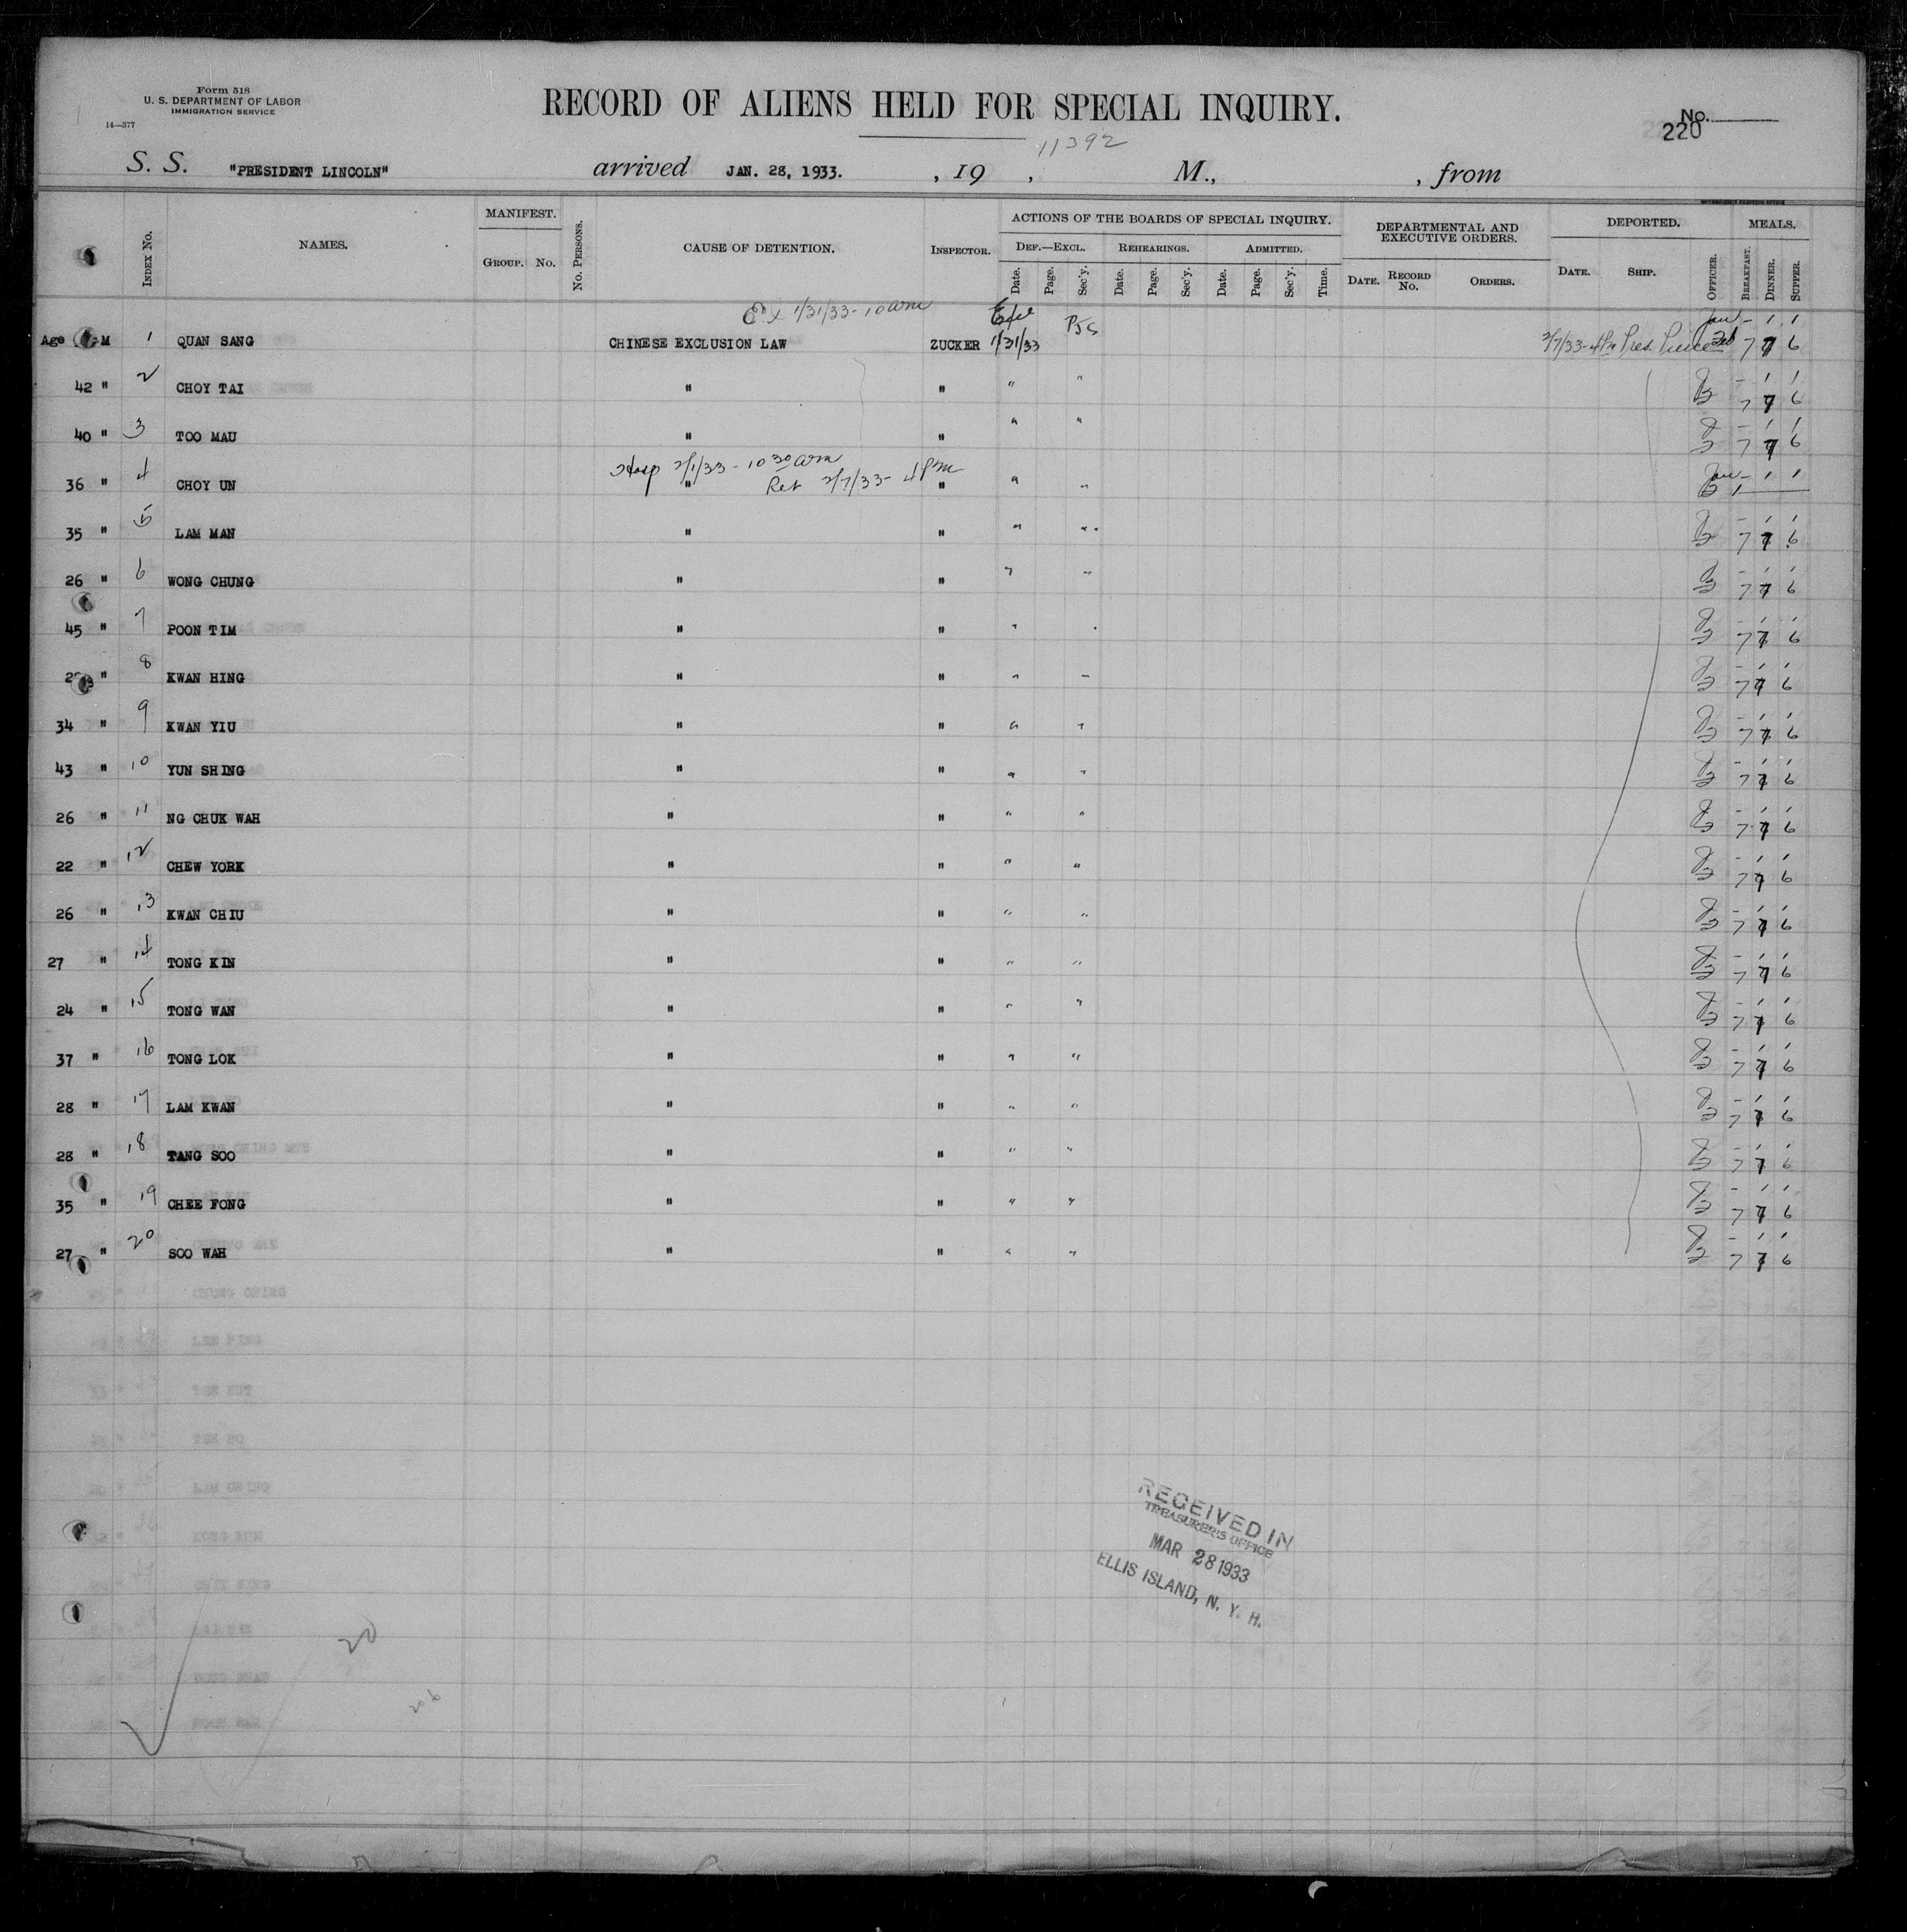 Form 518
U. S. DEPARTMENT OF LABOR
IMMIGRATION SERVICE
14—377
RECORD OF ALIENS HELD FOR SPECIAL INQUIRY.
No.
220
11392
S. S. "PRESIDENT LINCOLN" arrived JAN. 28, 1933. , 19 , M., , from
INDEX No. NAMES. MANIFEST. GROUP. No. No. PERSONS. CAUSE OF DETENTION. INSPECTOR. ACTIONS OF THE BOARDS OF SPECIAL INQUIRY. DEF.—EXCL. Date. Page. Sec'y. REHEARINGS. Date. Page. Sec'y. ADMITTED. Date. Page. Sec'y. Time. DEPARTMENTAL AND EXECUTIVE ORDERS. DATE. RECORD No. ORDERS. DEPORTED. DATE. SHIP. OFFICER. MEALS. BREAKFAST. DINNER. SUPPER.
1/31/33- 10 am
Age M 1 QUAN SANG CHINESE EXCLUSION LAW ZUCKER 1/31/33 2/7/33- Pres. Pierce Jan - 1 1 7 7 6
42 " 2 CHOY TAI " " " " - 1 1 7 7 6
40 " 3 TOO MAU " " " " - 1 1 7 7 6
Hosp 2/1/33 - 10 30 am
Ret 2/7/33- 4 Pm
36 " 4 CHOY UN " " " " Jan - 1 1
35 " 5 LAM MAN " " " " - 1 1 7 7 6
26 " 6 WONG CHUNG " " " " - 1 1 7 7 6
45 " 7 POON TIM " " " - 1 1 7 7 6
" 8 KWAN HING " " " " - 1 1 7 7 6
34 " 9 KWAN YIU " " " " - 1 1 7 7 6
43 " 10 YUN SHING " " " " - 1 1 7 7 6
26 " 11 NG CHUK WAH " " " " - 1 1 7 7 6
22 " 12 CHEW YORK " " " " - 1 1 7 7 6
26 " 13 KWAN CHIU " " " " - 1 1 7 7 6
27 " 14 TONG KIN " " " " - 1 1 7 7 6
24 " 15 TONG WAN " " " " - 1 1 7 7 6
37 " 16 TONG LOK " " " " - 1 1 7 7 6
28 " 17 LAM KWAN " " " " - 1 1 7 7 6
28 " 18 TANG SOO " " " " - 1 1 7 7 6
35 " 19 CHEE FONG " " " " - 1 1 7 7 6
27 " 20 SOO WAH " " " " - 1 1 7 7 6
RECEIVED IN
TREASURER'S OFFICE
MAR 28 1933
ELLIS ISLAND, N. Y. H.
20
206